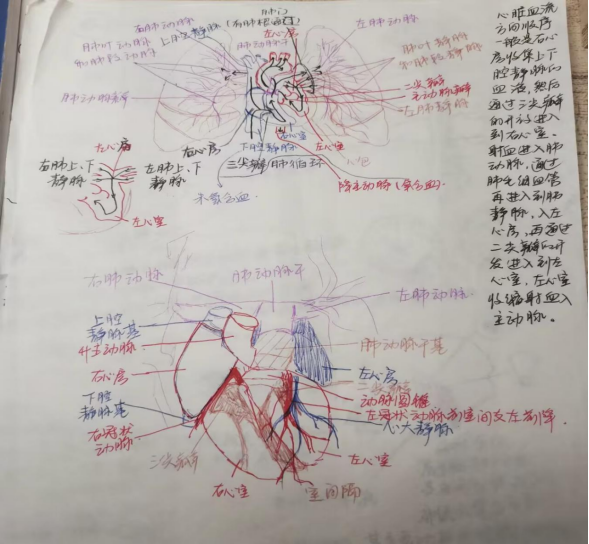 肺门
右肺动脉
(右肺根
左肺动脉
肺叶动脉
和肺段动脉
上腔静脉
肺动脉干
左心房
肺叶静脉
和肺段静脉
肺动脉瓣
二尖瓣
主动脉瓣
左肺静脉
右心房
下腔静脉
左心室
三尖瓣
肺循环
心包
降主动脉(氧合血)
未氧合血
左心房
右肺上、下
静脉
左肺上、下
静脉
左心室
心脏血流
方向顺序
一般是右心
房收集上下
腔静脉的
血液,然后
通过三尖瓣
的开放进入
到右心室。
射血进入肺
动脉,通过
肺毛细血管
再进入到肺
静脉,入左
心房,再通过
二尖瓣的开
放进入到左
心室,左心室
收缩射血入
主动脉。
右肺动脉
肺动脉干
左肺动脉
上腔
静脉
升主动脉
肺动脉干基
右心房
左心房
二尖瓣
下腔
静脉
动脉圆锥
左冠状动脉前室间支左前降
心大静脉
右冠状
动脉
三尖瓣
左心室
右心室
室间隔